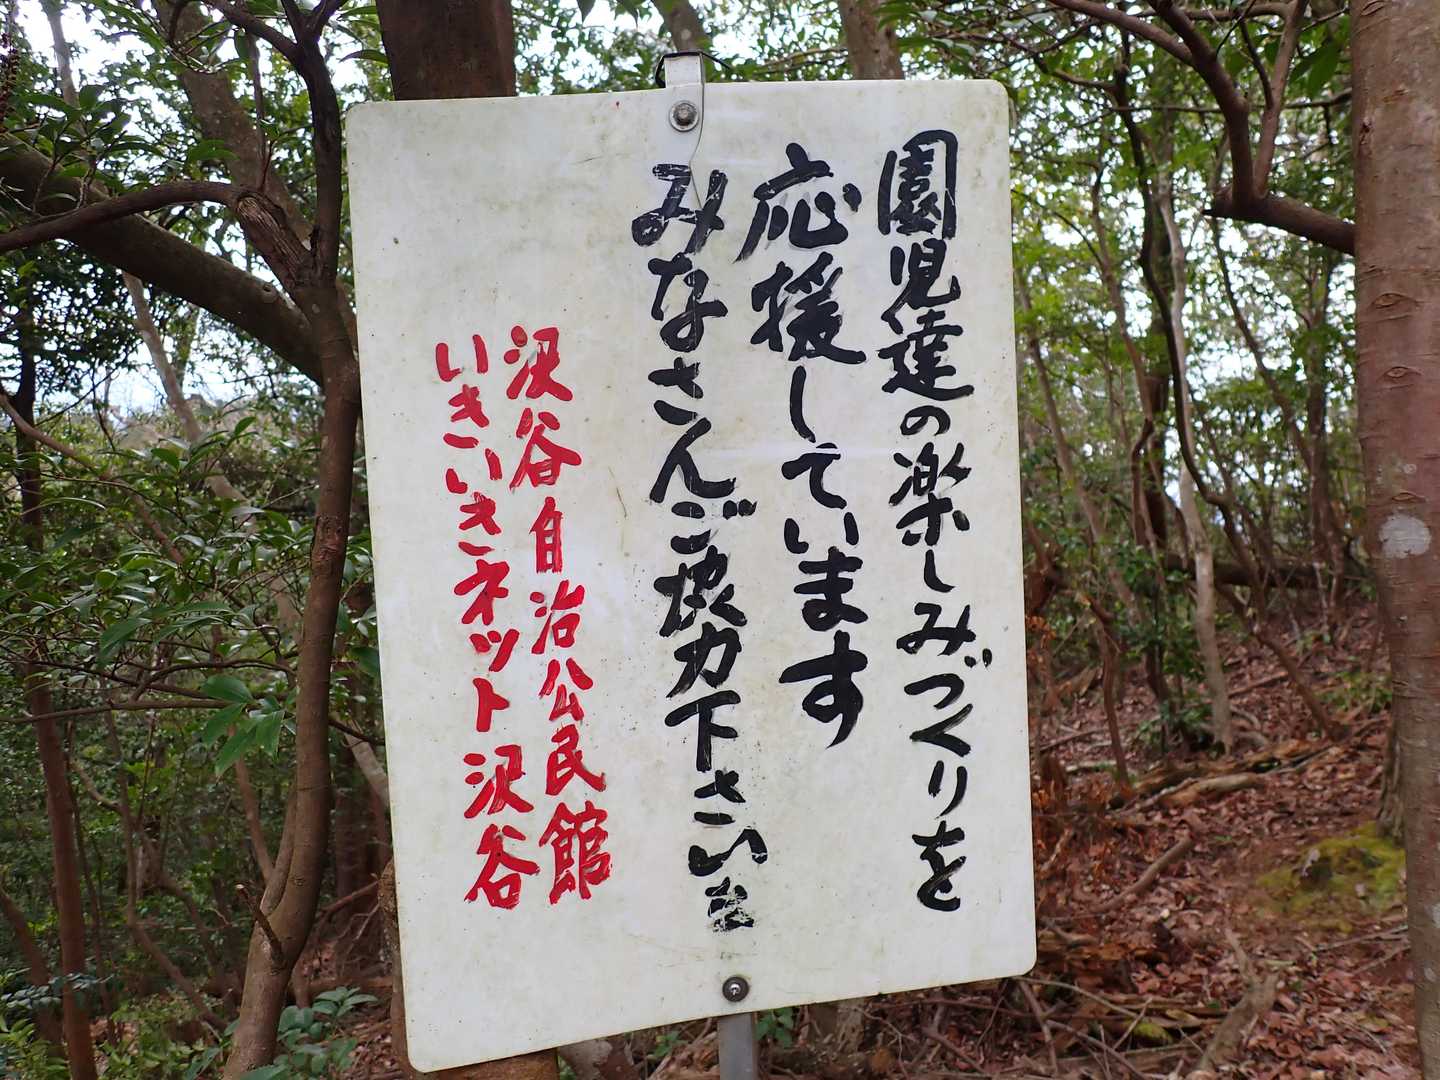 園児達の楽しみづくりを
応援しています
みなさんご協力下さいませ
沢谷自治公民館
いきいきネット沢谷